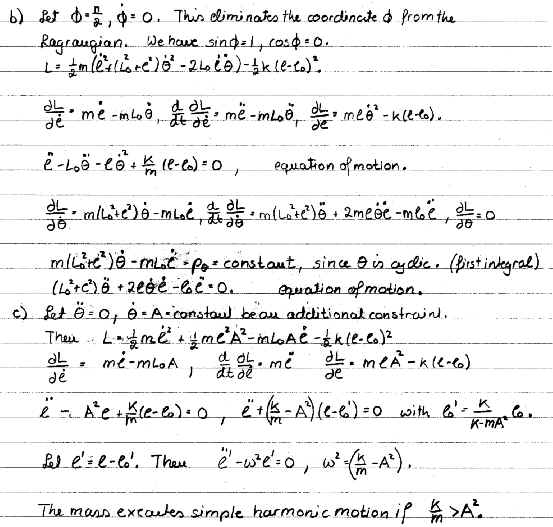 b) Let ϕ = π/2, ϕ̇ = 0. This eliminates the coordinate ϕ from the
Lagrangian. We have sinϕ = 1, cosϕ = 0.
L = ½m(ℓ̇² + (L₀² + ℓ²)θ̇² - 2L₀ ℓ̇θ̇) - ½k(ℓ-ℓ₀)².
∂L/∂ℓ̇ = mℓ̇ - mL₀θ̇, d/dt ∂L/∂ℓ̇ = mℓ̈ - mL₀θ̈, ∂L/∂ℓ = mℓθ̇² - k(ℓ-ℓ₀).
ℓ̈ - L₀θ̈ - ℓθ̇² + k/m (ℓ-ℓ₀) = 0 , equation of motion.
∂L/∂θ̇ = m(L₀²+ℓ²)θ̇ - mL₀ℓ̇, d/dt ∂L/∂θ̇ = m(L₀²+ℓ²)θ̈ + 2mℓθ̇ℓ̇ - mL₀ℓ̈ , ∂L/∂θ = 0
m(L₀²+ℓ²)θ̇ - mL₀ℓ̇ = p_θ = constant, since θ is cyclic. (first integral)
(L₀²+ℓ²)θ̈ + 2ℓθ̇ℓ̇ - ℓ₀ℓ̈ = 0. equation of motion.
c) Let θ̈ = 0, θ̇ = A = constant be an additional constraint.
Then L = ½mℓ̇² + ½mℓ²A² - mL₀Aℓ̇ - ½k(ℓ-ℓ₀)²
∂L/∂ℓ̇ = mℓ̇ - mL₀A , d/dt ∂L/∂ℓ̇ = mℓ̈ ∂L/∂ℓ = mℓA² - k(ℓ-ℓ₀)
ℓ̈ - A²ℓ + k/m(ℓ-ℓ₀) = 0 , ℓ̈ + (k/m - A²)(ℓ-ℓ₀') = 0 with ℓ₀' = k/(k-mA²) ℓ₀.
Let ℓ' = ℓ-ℓ₀'. Then ℓ̈' - ω²ℓ' = 0 , ω² = (k/m - A²).
The mass excutes simple harmonic motion if k/m > A².